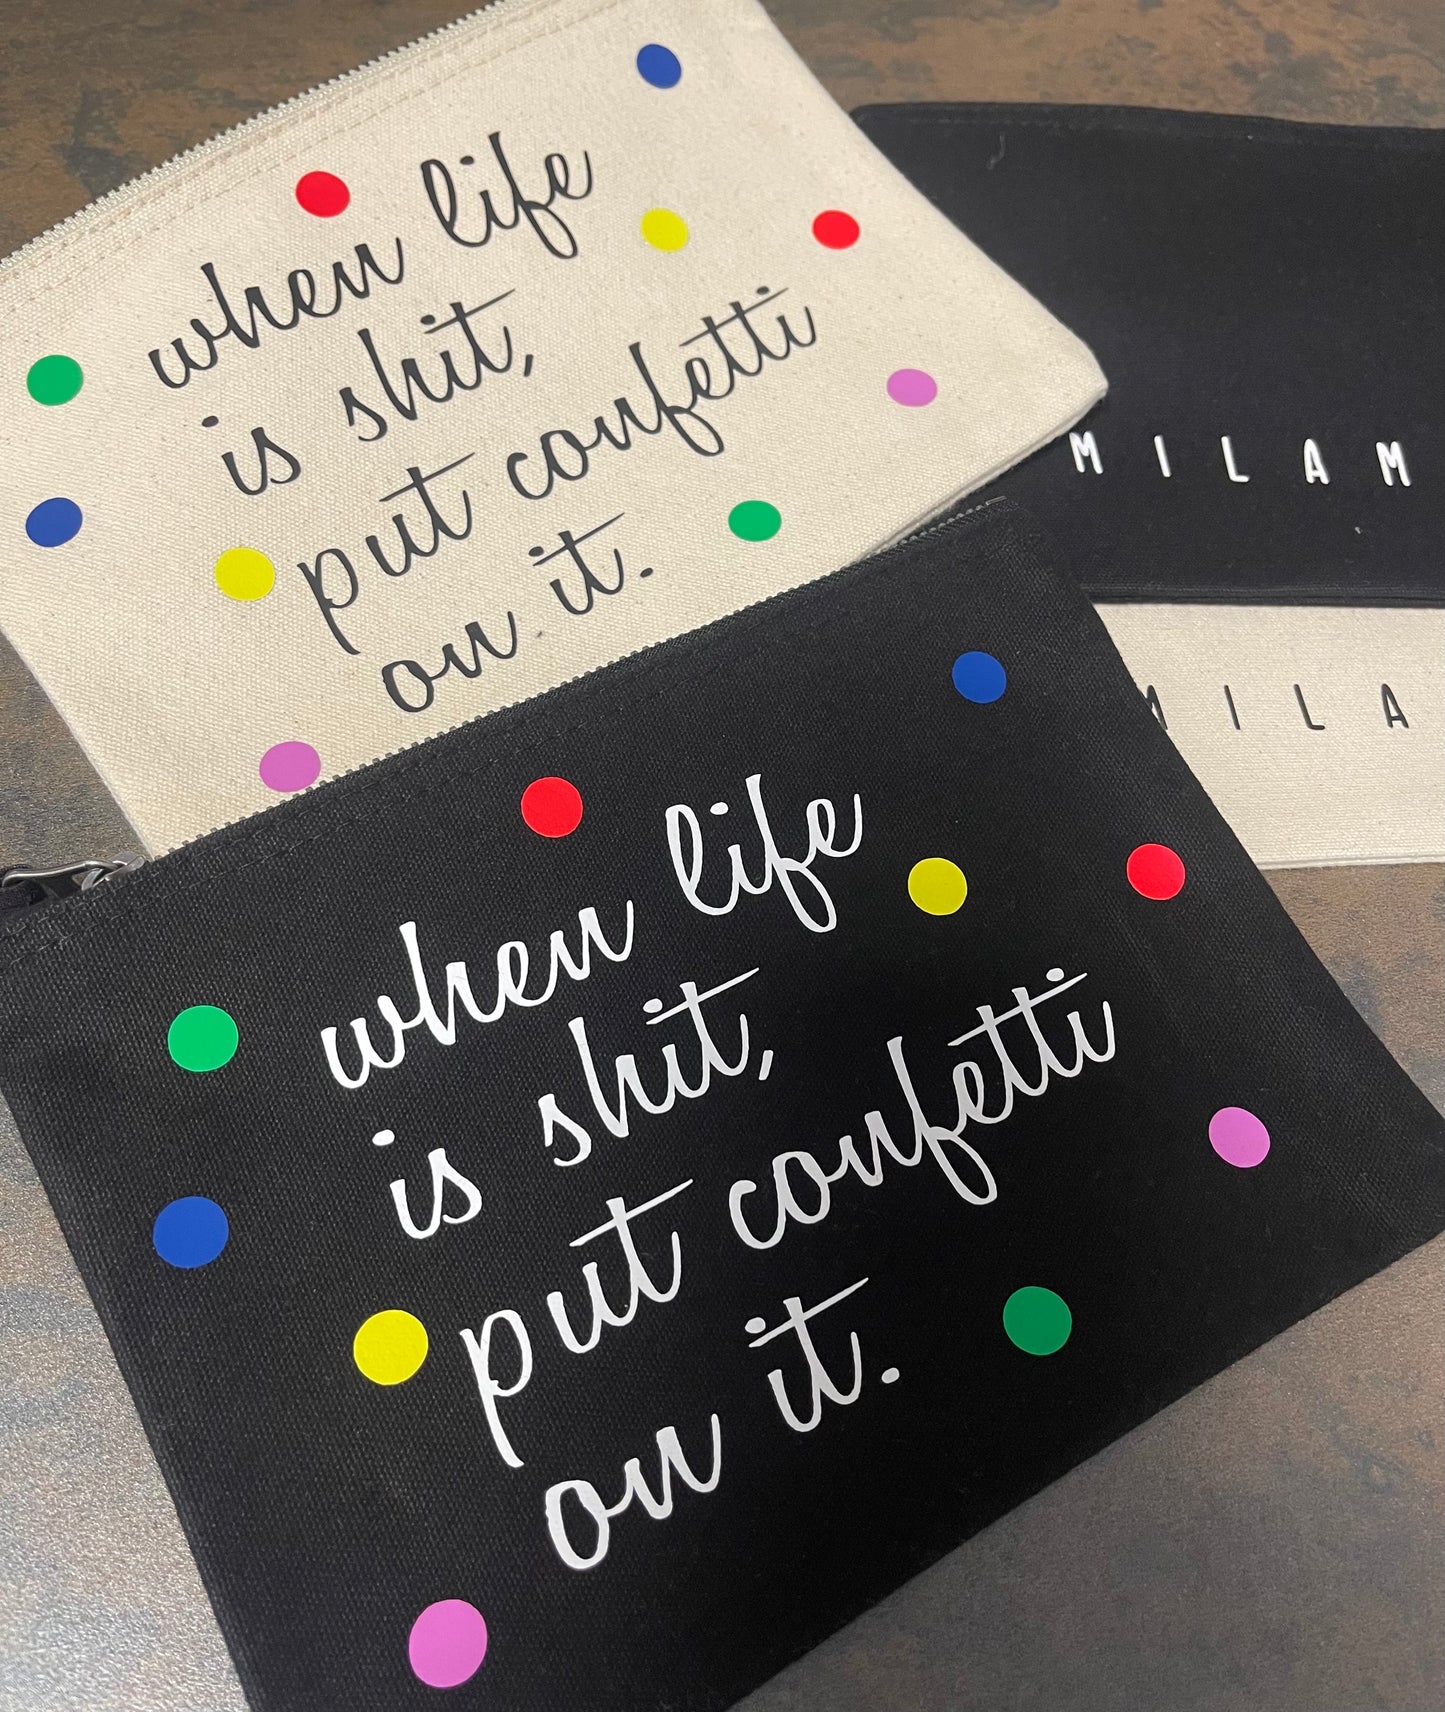 when life
is shit,
put confetti
on it.
MILAM
MILA
when life
is shit,
put confetti
on it.